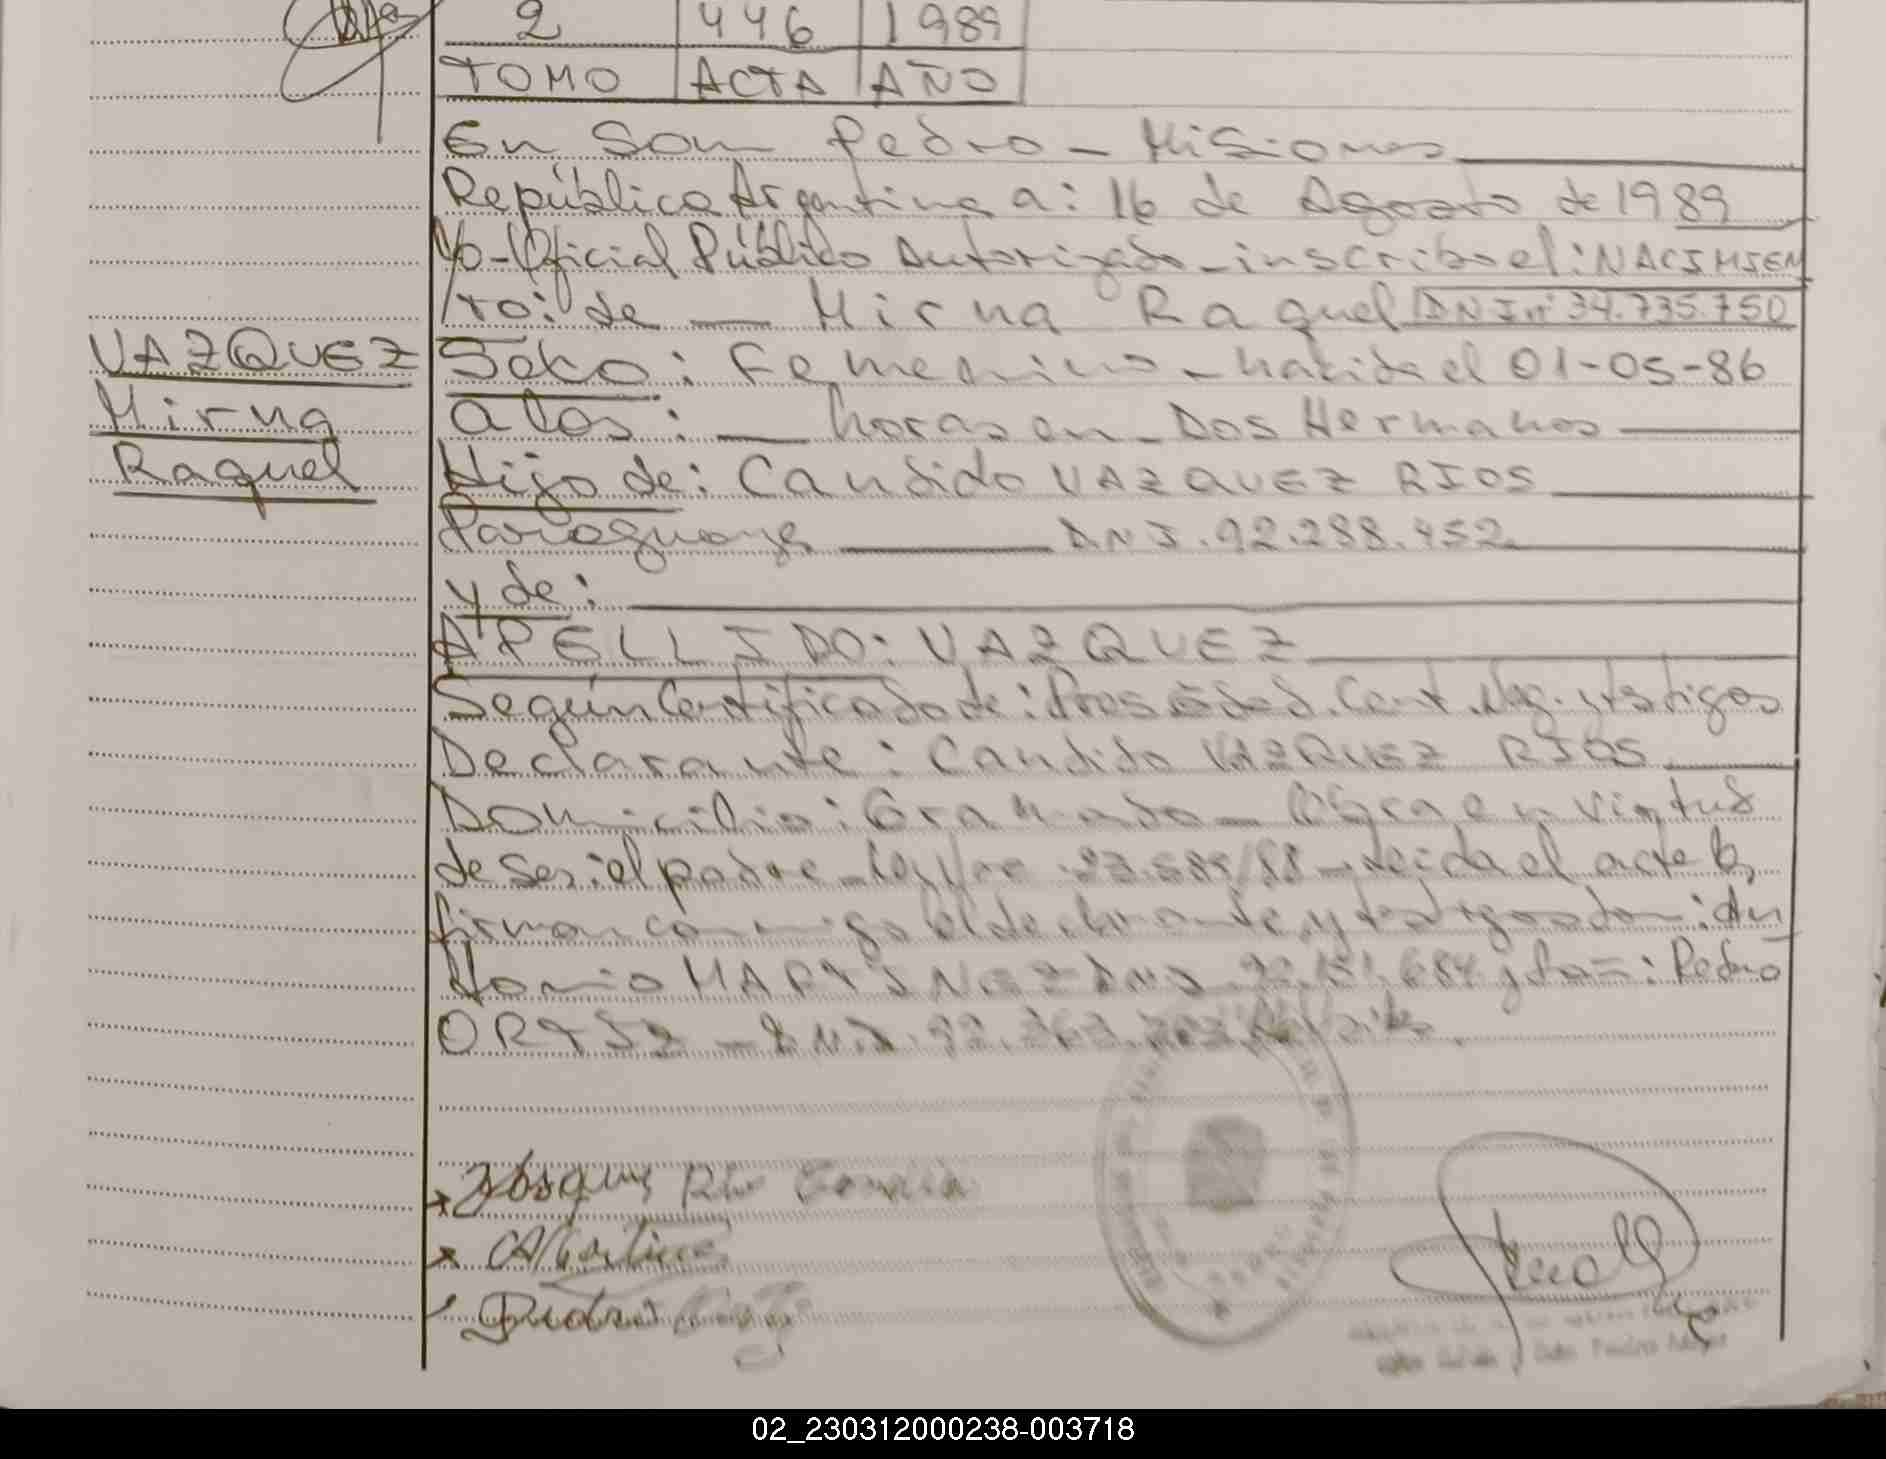 2 446 1989
TOMO ACTA AÑO
En San Pedro - Misiones
República Argentina a: 16 de Agosto de 1989
Yo-Oficial Público Autorizado-inscribo el: NACIMIEN
/TO: de — Mirna Raquel DNI nº 34.735.750
VAZQUEZ
Mirna
Raquel
Sexo: Femenino - nacida el 01-05-86
a las: — horas en - Dos Hermanas
Hijo de: Candido VAZQUEZ RIOS
Paraguaya — DNI. 92.288.452
y de:
APELLIDO: VAZQUEZ
Según Certificado de: Pres Edad. Cert. Neg. y testigos
Declarante: Candido VAZQUEZ RIOS
Domicilio: Gramado - Obra en virtud
de ser: el padre - Ley 23.585/88 - leida el acta la
firman conmigo el declarante y testigos don: An
tonio MARTINEZ DNI y don: Pedro
ORTIZ - DNI. 92.
Pedro
02_230312000238-003718